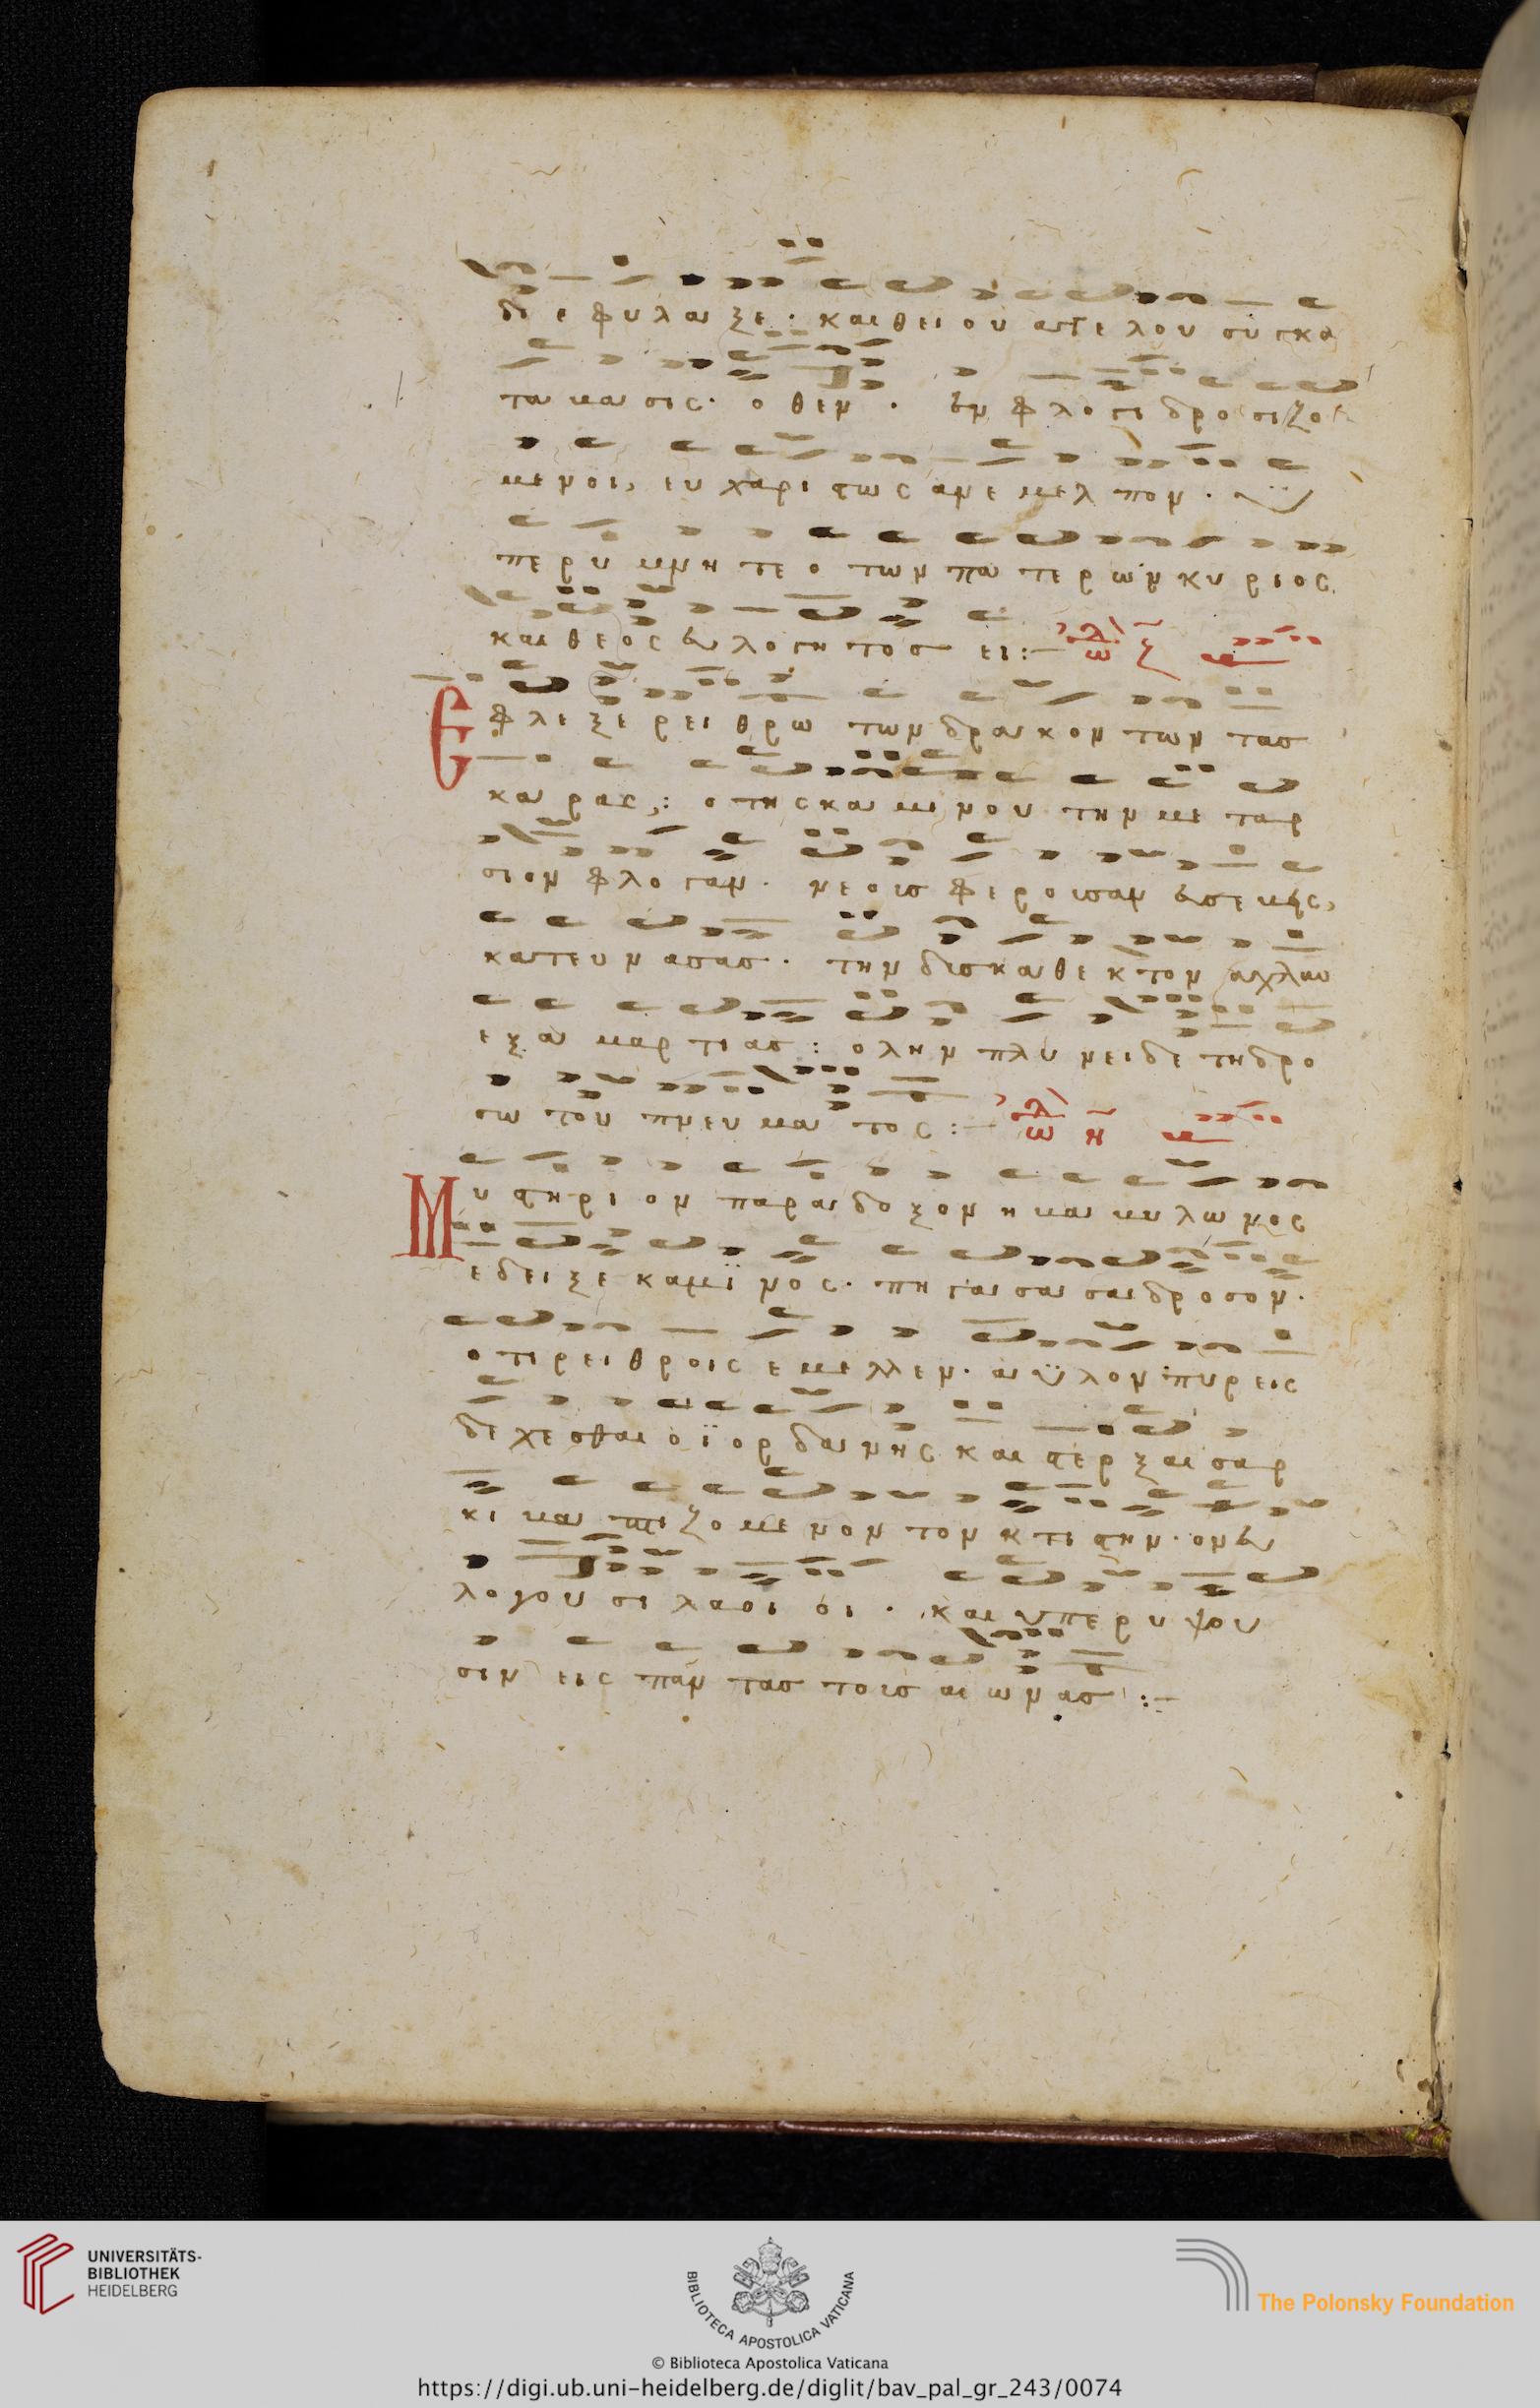 δι ε φυ λα ξε · και θει ου αγγε λου συ γκα
τα βα σις · ο θεν · εν φλο γι δρο σι ζο
με νοι, ευ χαρι στως ανε μελ πον · υ
περυ μνη τε ο των πα τε ρων κυ ριος
και θεος ευλο γη τος ει :— ὠδ ζ
Ε φλε ξε ρει θρω των δρα κον των τας
κα ρας : ο της κα μι νου την με ταρ
σιον φλο γαν · νεους φερουσαν ευσεβεις,
κατευνασας · την δυσκα θε κτον αχλυν
εξ α μαρ τι ας : ο λην πλυ νει δε τη δρο
σω του πνευ μα τος :— ὠδ η
Μυ στη ρι ον παρα δο ξον η βα βυ λω νος
ε δει ξε καμϊ νος · πη γα σα σα δρο σον ·
ο τι ρει θροις ε με λλεν · α ϋλον πυρ εις
δε χε σθαι ο ϊορ δα νης και στερ ξαι σαρ
κι βα πτι ζο με νον τον κτι στην · ον ευ
λο γου σι λαοι οι · και υπε ρυ ψου
σιν εις παν τας τους αι ω νας :—
UNIVERSITÄTS-
BIBLIOTHEK
HEIDELBERG
BIBLIOTECA APOSTOLICA VATICANA
The Polonsky Foundation
© Biblioteca Apostolica Vaticana
https://digi.ub.uni-heidelberg.de/diglit/bav_pal_gr_243/0074